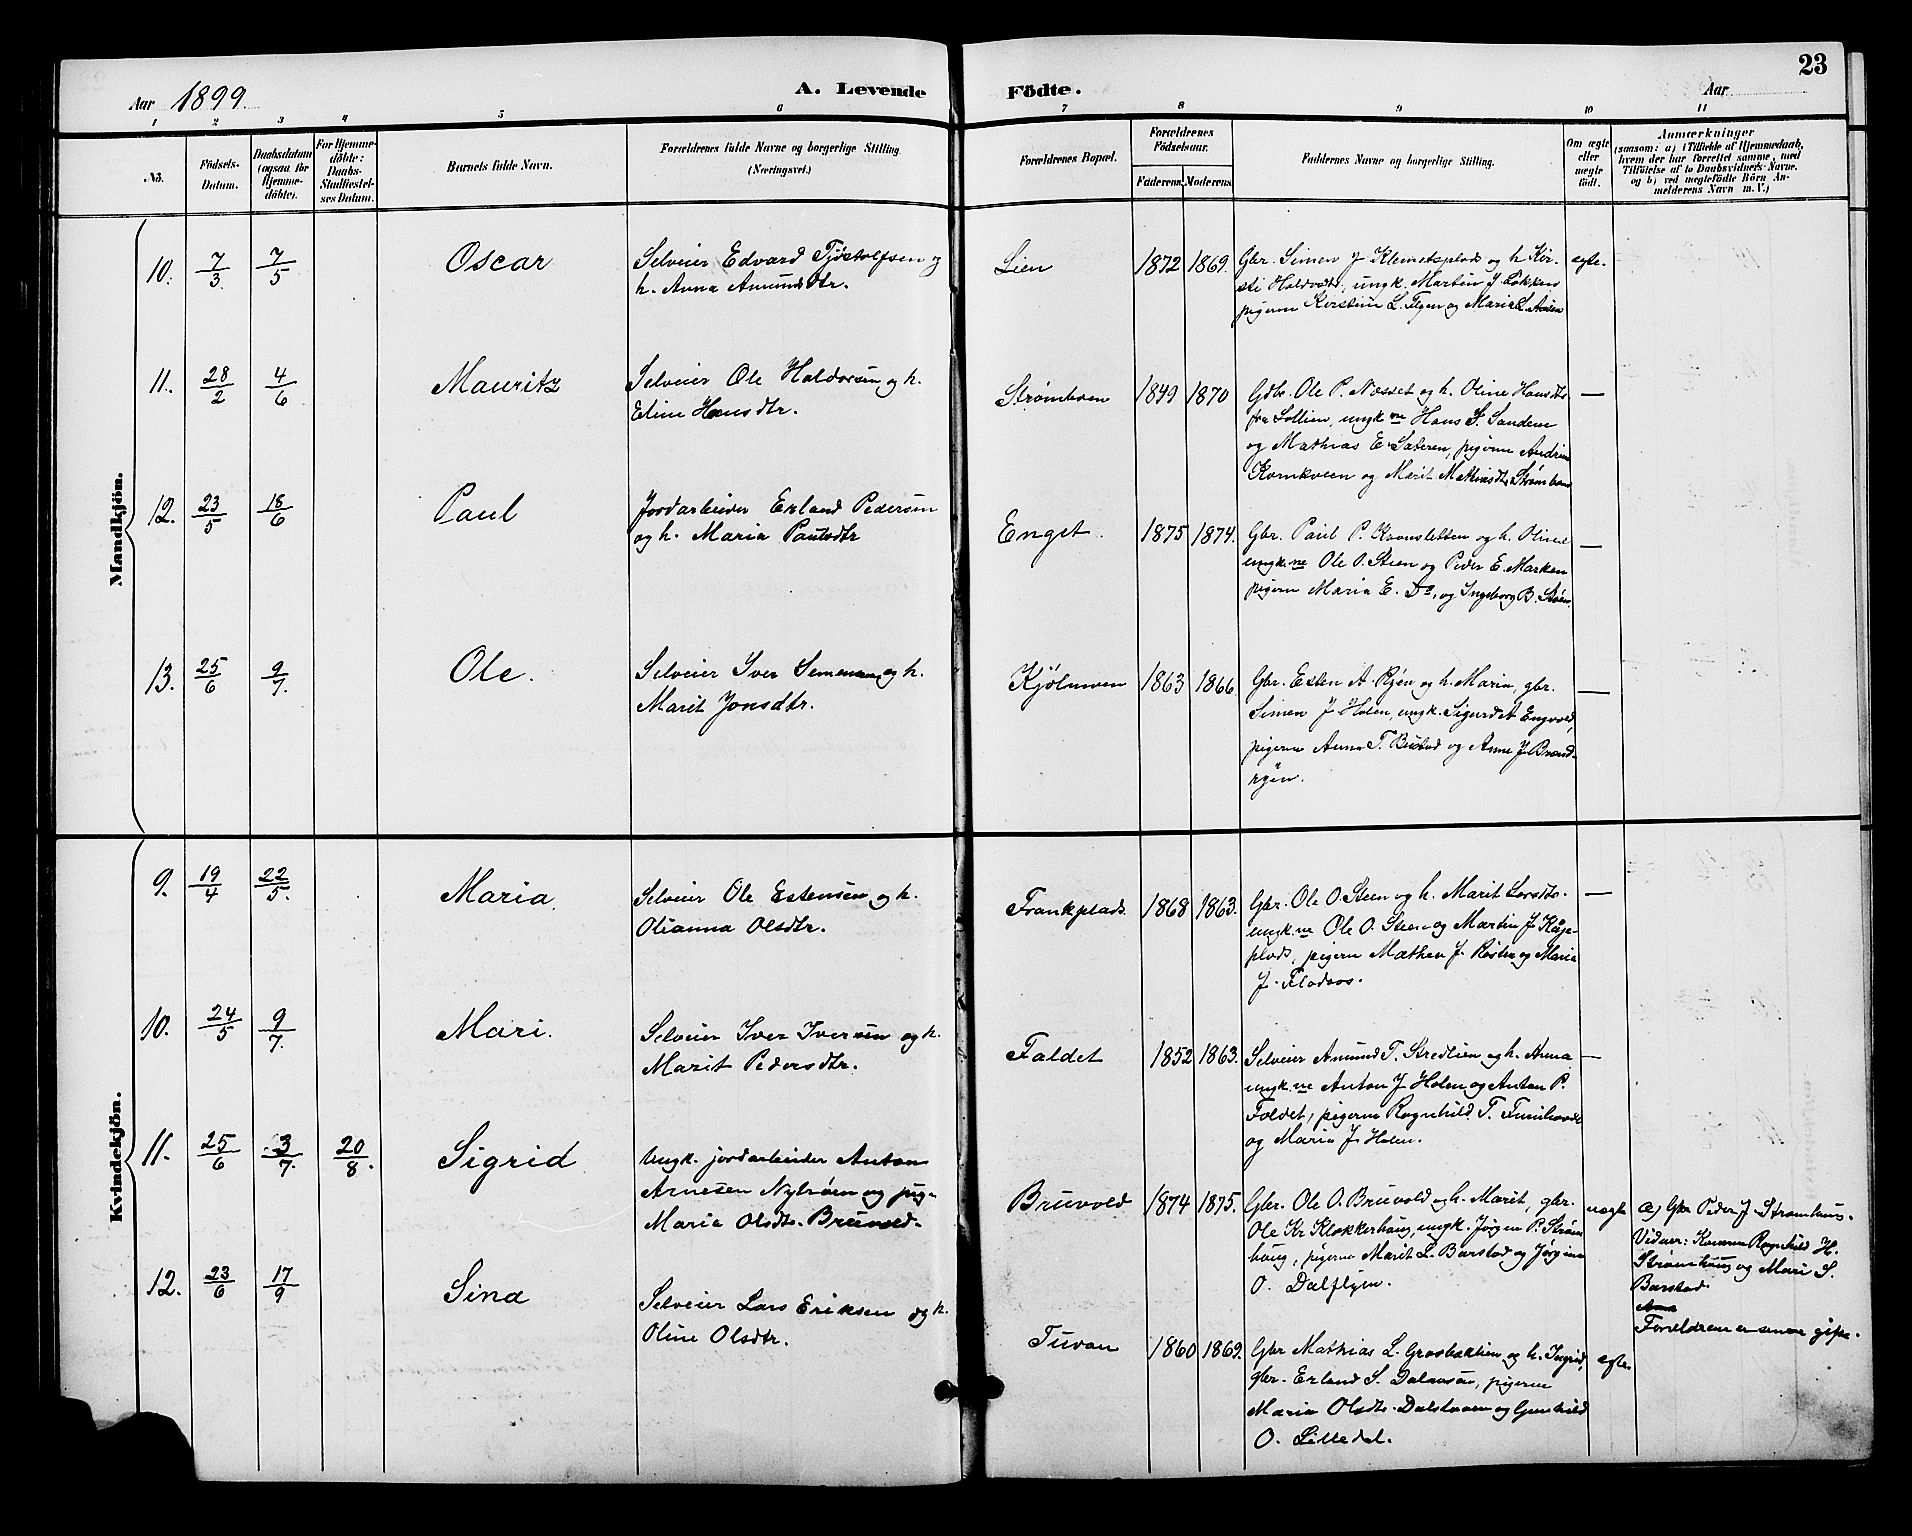 23
Aar 1899.
A. Levende Födte.
Aar
1 2 3 4 5 6 7 8 9 10 11
No.
Födsels-
Datum.
Daabsdatum
(ogsaa for
Hjemme-
döbte).
For Hjemme-
döbte:
Daabs-
Stadfæstel-
ses Datum.
Barnets fulde Navn.
Forældrenes fulde Navne og borgerlige Stilling
(Næringsvei.)
Forældrenes Bopæl.
Forældrenes
Födselsaar.
Faderens. Moderens.
Faddernes Navne og borgerlige Stilling.
Om ægte
eller
uægte
födt.
Anmærkninger
(saasom: a) i Tilfælde af Hjemmedaab,
hvem der har forrettet samme, med
Tilföielse af to Daabsvidners Navne.
og b) ved uægtefödte Börn An-
melderens Navn m. V.)
Mandkjön.
10. 7/3 7/5 Oscar
Selveier Edvard Tjöstolfsen og
h. Anna Amundsdtr.
Lien 1872 1869.
Gbr. Simen J Klemetsplads og h. Kir-
sti Haldvdtr, ungk. Martin J Løkken
pigerne Kirstine L. Flyen og Marie L. Aasen
ægte-
11. 28/2 4/6 Mauritz
Selveier Ole Haldorsen og h.
Eline Hansdtr.
Strømboen 1849 1870
Gdbr. Ole P. Næsset og h. Oline Hansdtr
fra Sollien, ungk.ne Hans S. Sandeen
og Mathias E. Sæteren, pigerne Andrine
Kornkveen og Marit Mathisdtr, Strømboen
—
12. 23/5 18/6 Paul
Jordarbeider Erland Pedersen
og h. Maria Paulsdtr
Enget. 1875 1874.
Gbr. Paul P. Kavnsletten og h. Oline
ungk.ne Ole O. Steen og Peder E. Marken
pigerne Maria E. Do, og Ingeborg B. Støen.
—
13. 25/6 9/7. Ole.
Selveier Iver Simensen og h.
Marit Jonsdtr.
Kjølmoen 1863 1866
Gbr. Esten A. Ryen og h. Maria, gbr.
Simen J Holen, ungk. Sigurd A Engvold,
pigerne Anna T. Bustad og Anne J Brænd-
ryen.
—
Kvindekjön.
9. 19/4 22/5. Maria
Selveier Ole Estensen og h.
Olianna Olsdtr.
Frankplads. 1868 1863.
Gbr. Ole O. Steen og h. Marit Larsdtr.
ungk.ne Ole O. Steen og Martin J Kløp-
plads, pigerne Mathea J. Røsten og Maria
J. Flodaas.
—
10. 24/5 9/7. Mari.
Selveier Iver Iversen og h.
Marit Pedersdtr.
Faldet 1852 1863.
Selveier Amund T. Stredlien og h. Anna
ungk.ne Anton J Holen og Anton P.
Foldet, pigerne Ragnhild T. Furuhovde
og Maria J Holen.
—
11. 25/6 3/7. 20/8. Sigrid
Ungk. jordarbeider Anton
Arnesen Nytrøen og pige
Maria Olsdtr. Bruvold.
Bruvold 1874 1875.
Gbr. Ole O. Bruvold og h. Marit, gbr.
Ole Kr Klokkerhaug, ungk. Jørgen P. Strøm-
haug, pigerne Marit L. Barstad og Jørgine
O. Dalflyen.
uægte
a) Gbr Peder J. Strømhaug.
Vidner: Konerne Ragnhild H.
Strømhaug og Mari S.
Barstad
Forældrene er senere gift.
12. 23/6 17/9 Sina
Selveier Lars Eriksen og h.
Oline Olsdtr.
Tuvan 1860 1869.
Gbr Mathias L. Grosbakklien og h. Ingrid,
gbr. Erland S. Dalmoen, pigerne
Maria Olsdtr. Dalstuen og Gunhild
O. Lilledal.
ægte.